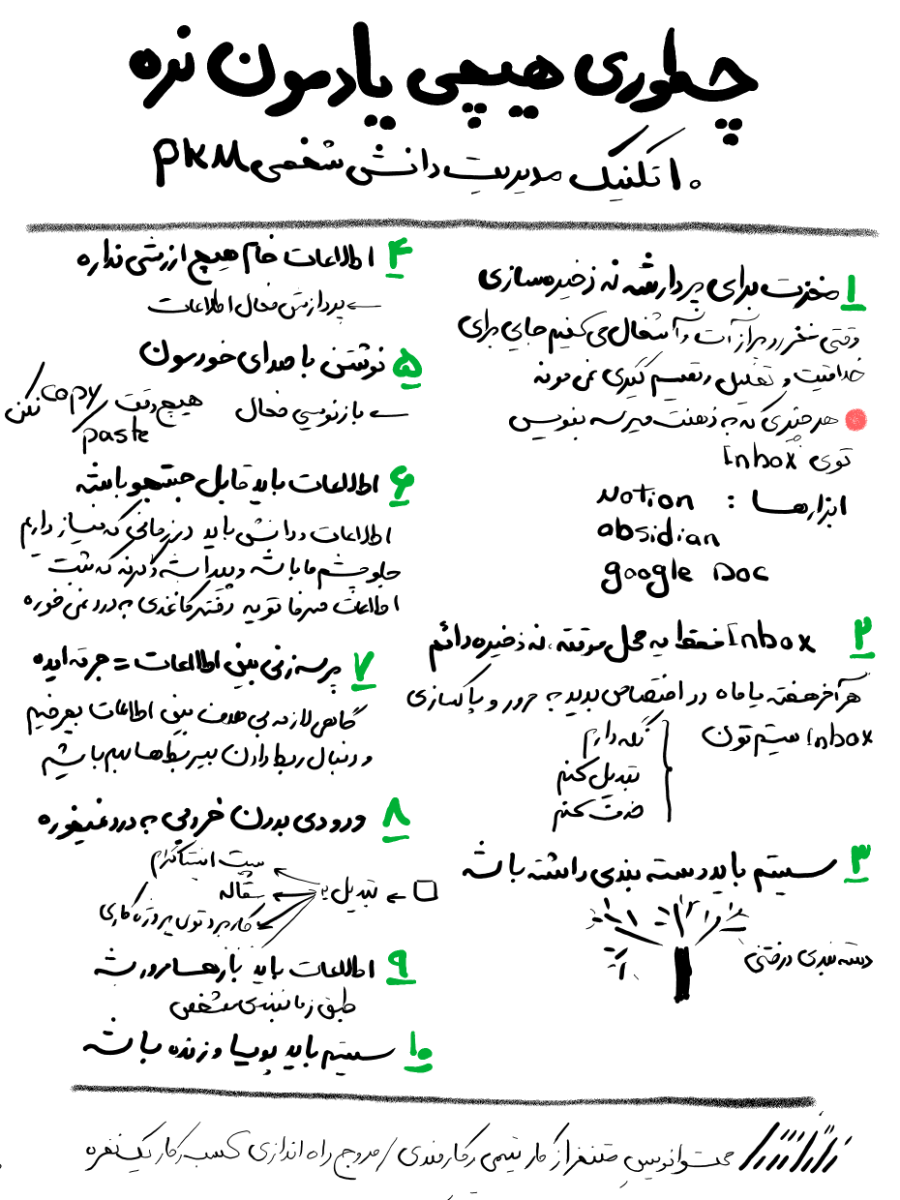 چطوری هیچی یادمون نره
۱۰ تکنیک مدیریت دانش شخصی PKM
۱ مغزت برای پردازشه نه ذخیره‌سازی
وقتی مغز رو پر از آت و آشغال می‌کنیم جایی برای
خلاقیت و تحلیل و تصمیم گیری نمی‌مونه
هر چیزی که به ذهنت میرسه بنویس
توی Inbox
ابزارها : Notion
obsidian
google Doc
۲ Inbox فقط یه محل موقته، نه ذخیره دائم
هر آخر هفته یا ماه در اختصاص بدید به مرور و پاکسازی
inbox سیستم‌تون
نگه دارم
تبدیل کنم
حذف کنم
۳ سیستم باید دسته بندی داشته باشه
دسته بندی درختی
۴ اطلاعات خام هیچ ارزشی نداره
← پردازش فعال اطلاعات
۵ نوشتن با صدای خودمون
← بازنویسی فعال هیچ‌وقت copy/paste نکن
۶ اطلاعات باید قابل جستجو باشه
اطلاعات و دانش باید در زمانی که نیاز داریم
جلو چشم ما باشه و پیدا شه وگرنه که ثبت
اطلاعات صرفا تو یه دفتر کاغذی به درد نمی‌خوره
۷ پرسه زنی بین اطلاعات = جرقه ایده
گاهی لازمه بی هدف بین اطلاعات بچرخیم
و دنبال ربط دادن بی‌ربط‌ها بهم باشیم
۸ ورودی بدون خروجی به درد نمیخوره
← تبدیل به
پست اینستاگرام
مقاله
کاربرد توی پروژه کاری
۹ اطلاعات باید بارها مرور شه
طبق زمانبندی مشخص
۱۰ سیستم باید پویا و زنده باشه
محتوانویس متنفر از کار تیمی و کارمندی / مروج راه اندازی کسب و کار یک نفره